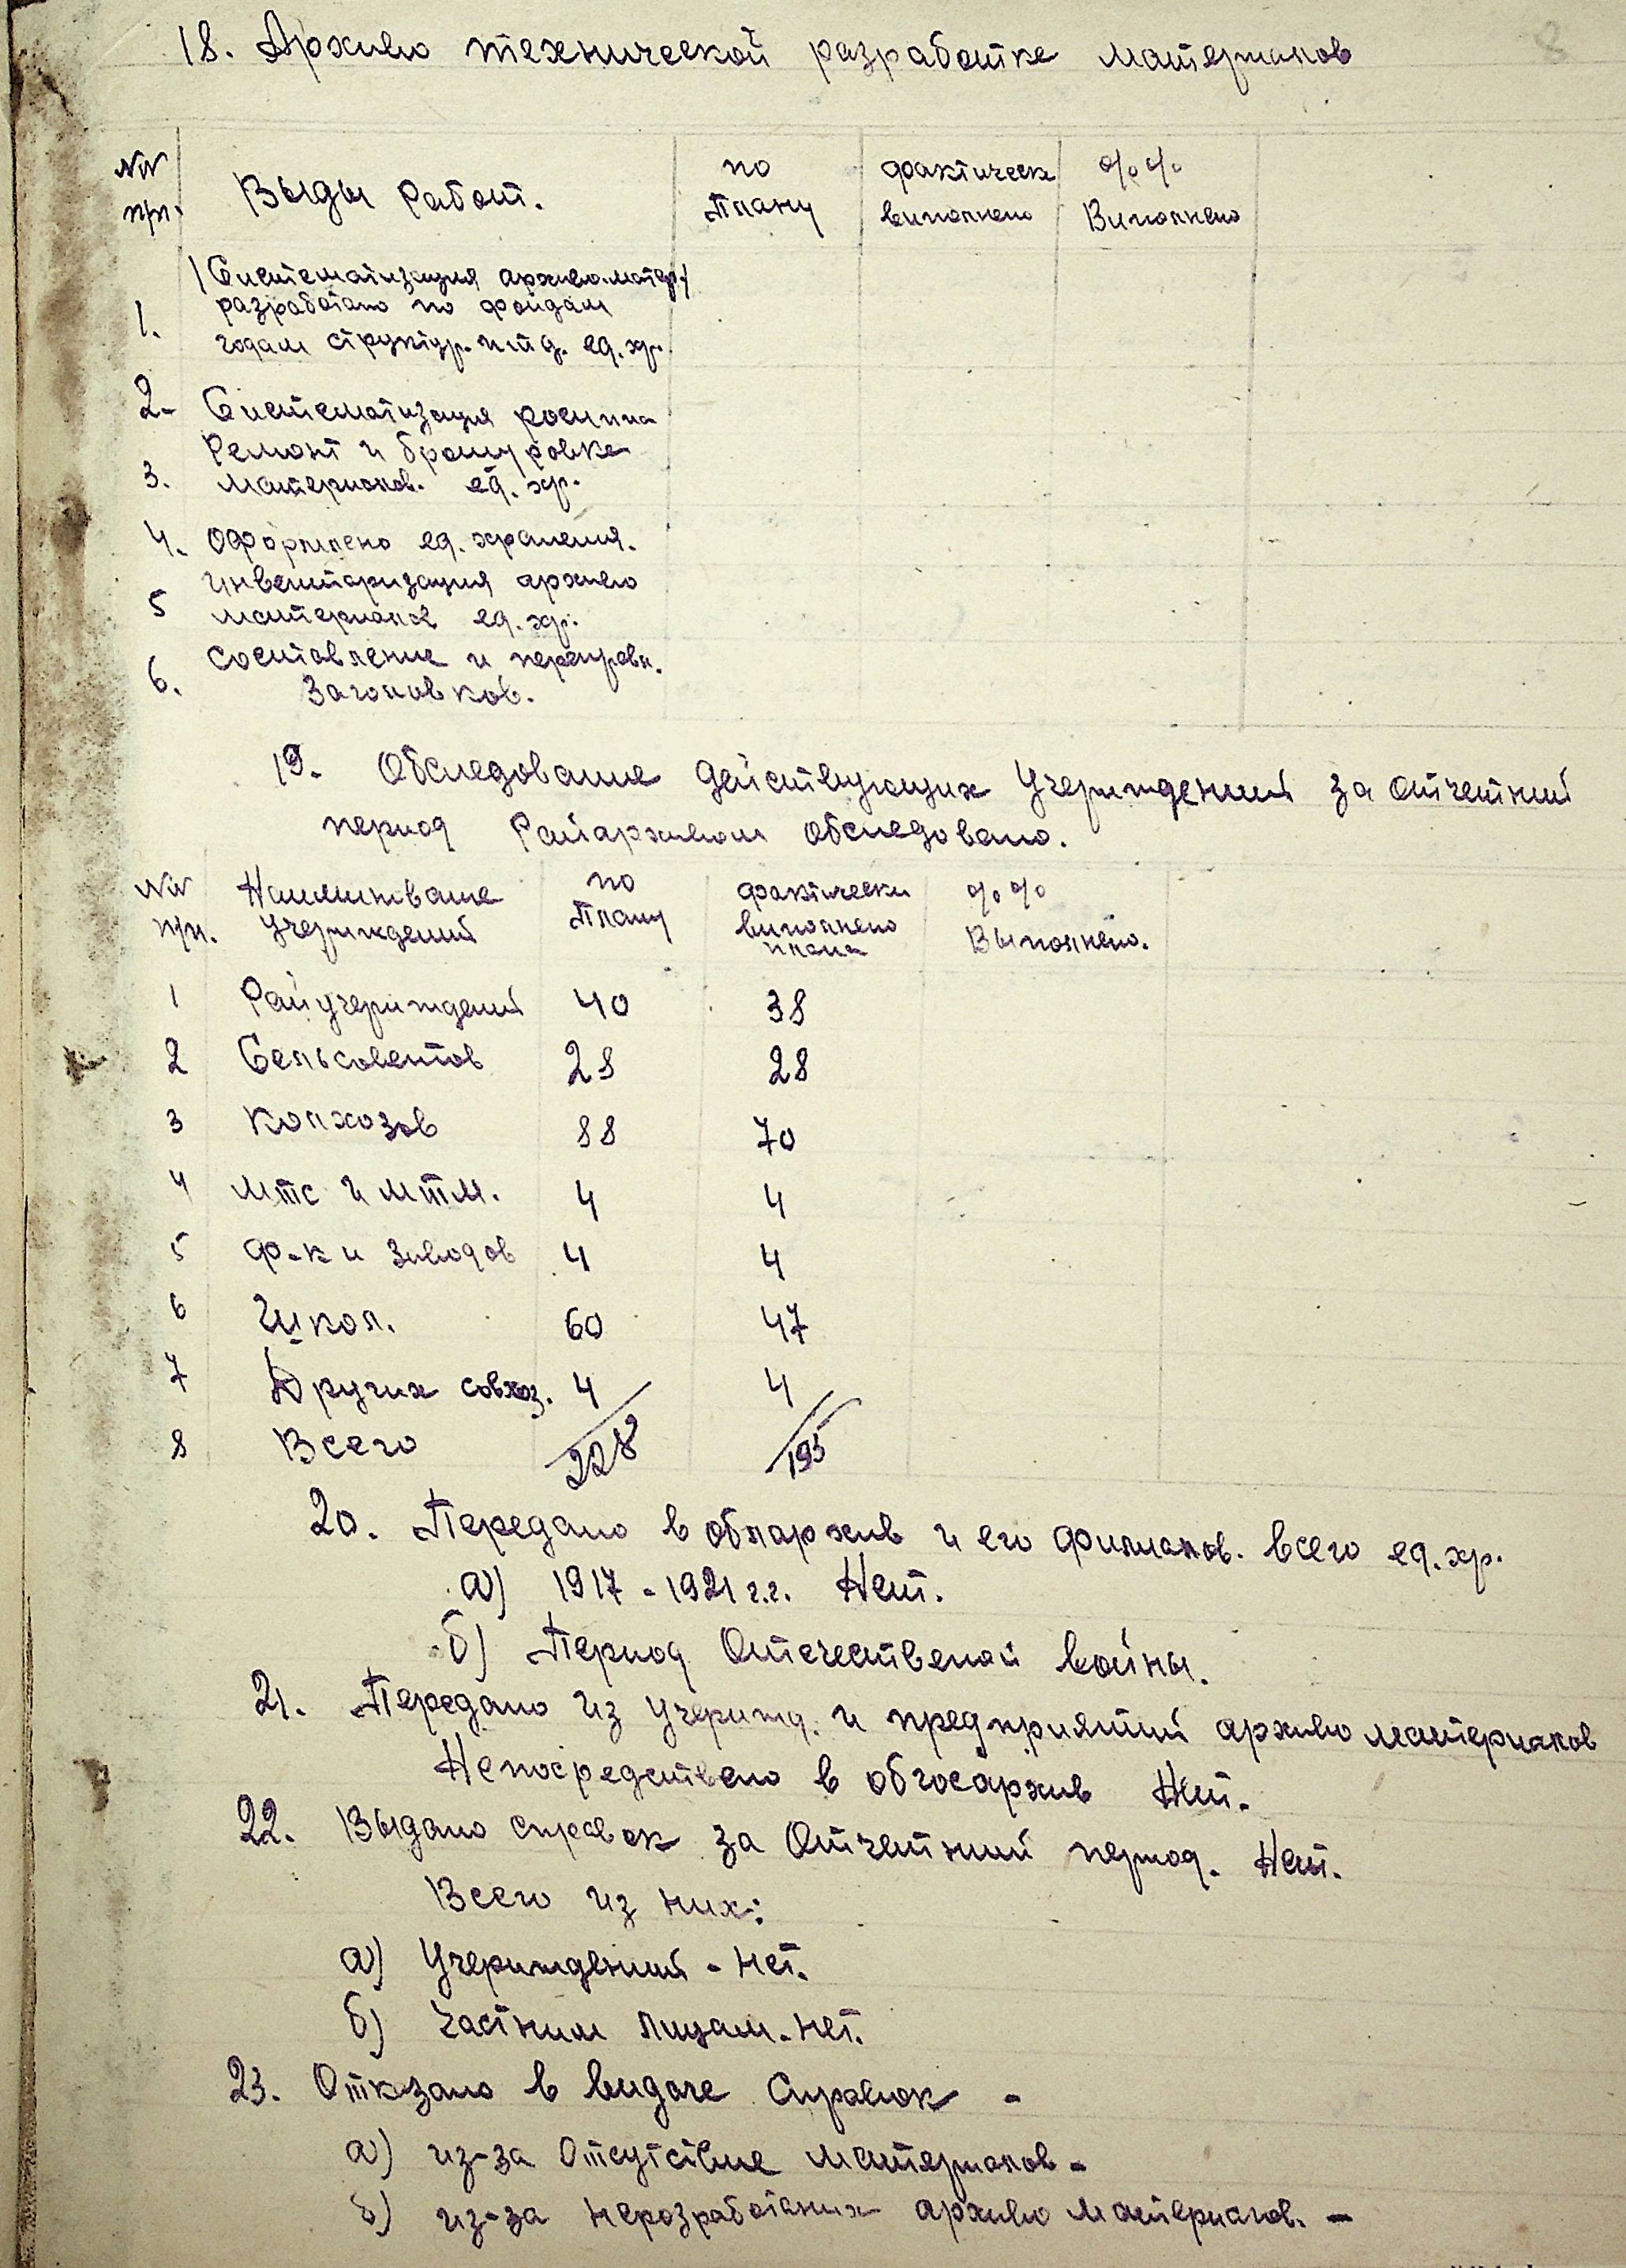 8
18. Архивно технической разработке материалов
№№ Выды работ. по фактическ %%
п/п. плану виполнено Виполнено
/Систематизация архивно.матер./
разработано по фондам
1. годам структур. и т д. ед. хр.
2. Систематизация россипи
Ремонт и брошуровке
3. материалов. ед. хр.
4. Оформлено ед. хранения.
Инвентаризация архивно
5 материала ед. хр.
Составление и
6. Заголовков.
19. Обследование действующих Учериждений за отчетний
период Райархивом обследовано.
№№ Наименование по фактически %%
п/п. Учериждений плану виполнено Выполнено.
плана
1 Райучериждений 40 38
2 Сельсоветов 28 28
3 Колхозов 88 70
4 мтс и мтм. 4 4
5 ф-к и заводов 4 4
6 Школ. 60 47
7 Других совхоз. 4 4
8 Всего 228 195
20. Передано в облархив и его филиалов. всего ед. хр.
а) 1917 - 1921 г.г. Нет.
б) Период Отечественой войны.
21. Передано из учерижд. и предприятий архивно материалов
Непосредствено в облгосархив Нет.
22. Выдано справок за Отчетний период. Нет.
Всего из них:
а) Учериждений - нет.
б) Частним лицам. нет.
23. Отказано в видаче Справок -
а) из-за Отсутствие материалов -
б) из-за неразработаних архивно материалов. -